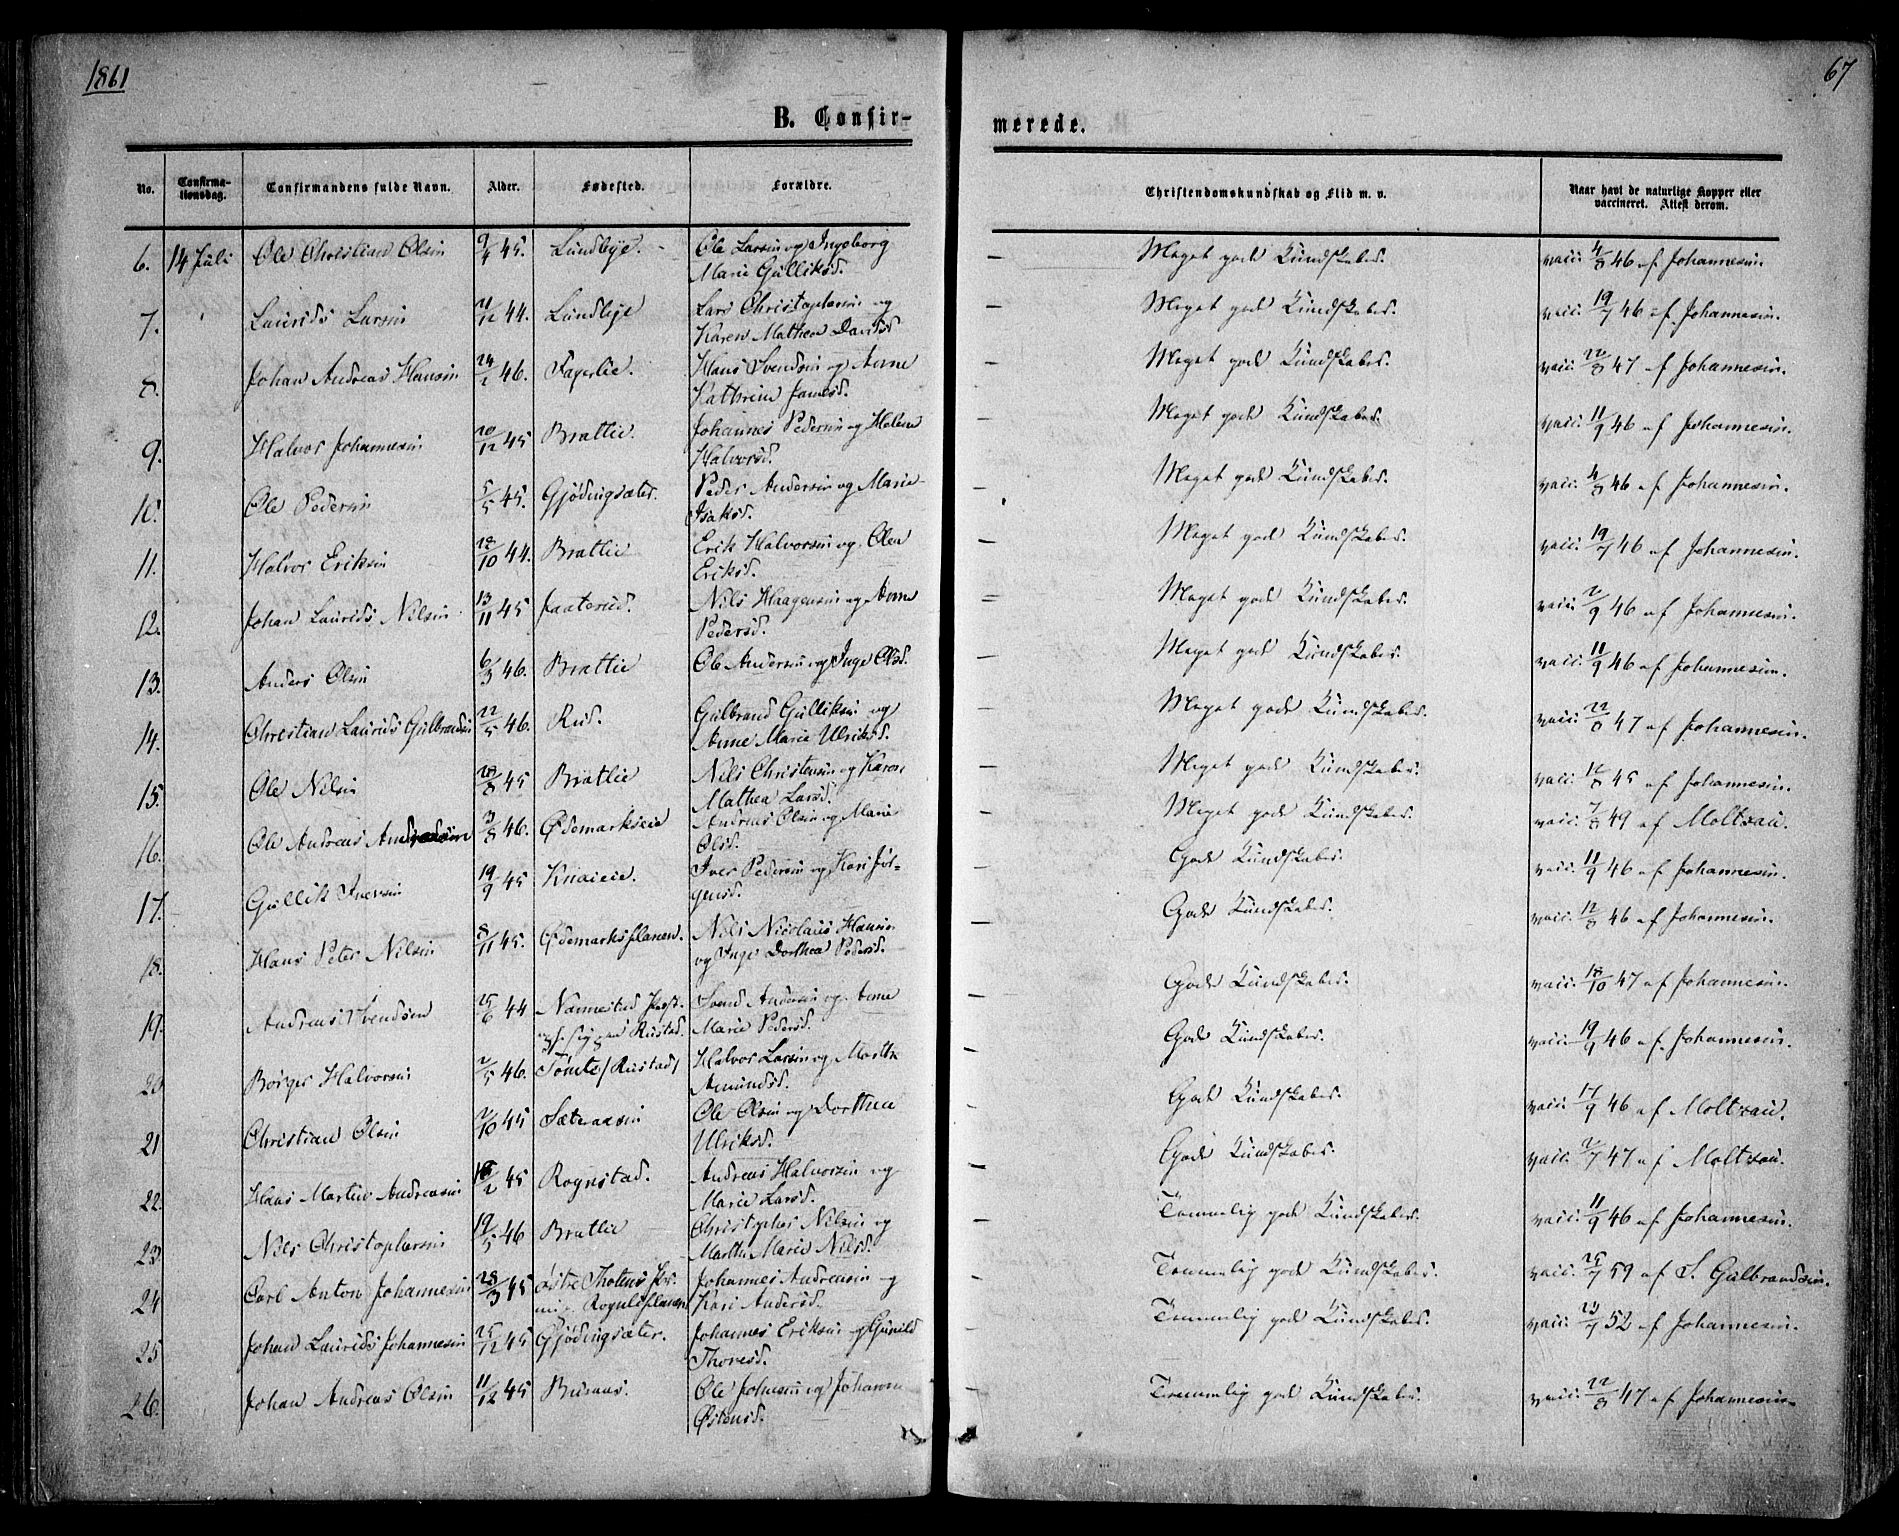 1861
67
B. Confir-
merede.
No.
Confirma-
tionsdag.
Confirmandens fulde Navn.
Alder.
Fødested.
Forældre.
Christendomskundskab og Flid m. v.
Naar havt de naturlige Kopper eller
vaccineret. Attest derom.
6. 14 Juli Ole Christian Olsen 9/4 45. Lundbye. Ole Larsen og Ingeborg
Marie Gulliksd.
— Meget gode Kundskaber. vacc. 4/8 46 af Johannesen.
7. Laurids Larsen 11/12 44. Lundbye Lars Christophersen og
Karen Mathea Davidsd
— Meget gode Kundskaber. vacc. 19/7 46 af Johannesen.
8. Johan Andreas Hansen 24/2 46. Fagerlie. Hans Svendsen og Anne
Kathrine Jonesd.
— Meget gode Kundskaber. vacc. 22/8 47 af Johannesen.
9. Halvor Johannesen 20/12 45 Bratlie. Johannes Pedersen og Helene
Halvorsd.
— Meget gode Kundskaber. vacc. 11/9 46 af Johannesen.
10. Ole Pedersen 5/5 45. Gjødingsæter. Peder Andersen og Marie
Isaksd.
— Meget gode Kundskaber. vacc. 4/8 46 af Johannesen.
11. Halvor Eriksen 28/10 44. Bratlie Erik Halvorsen og Olea
Eriksd.
— Meget gode Kundskaber. vacc. 19/7 46 af Johannesen.
12. Johan Laurids Nilsen 13/11 45 Jaaterud. Nils Haagensen og Anne
Pedersd.
— Meget gode Kundskaber. vacc. 2/9 46 af Johannesen.
13. Anders Olsen 6/3 46. Bratlie Ole Andersen og Inge Olsd.
— Meget gode Kundskaber. vacc. 11/9 46 af Johannesen.
14. Christian Laurids Gulbrandsen 22/5 46. Rud. Gulbrand Gulliksen og
Anne Marie Ulriksd.
— Meget gode Kundskaber. vacc. 22/8 47 af Johannesen.
15. Ole Nilsen 28/8 45 Bratlie Nils Christensen og Karen
Mathea Larsd.
— Meget gode Kundskaber. vacc. 12/8 45 af Johannesen.
16. Ole Andreas Andreasen 3/8 46. Ødemarkseie Andreas Olsen og Marie
Olsd.
— Meget gode Kundskaber. vacc. 7/8 49 af Moltzau.
17. Gullik Iversen 19/9 45 Knaieie. Iver Pedersen og Kari Jör-
gensd.
— Gode Kundskaber. vacc. 11/9 46 af Johannesen.
18. Hans Peter Nilsen 8/11 45. Ødemarksflaten. Nils Nicolaus Hansen
og Inge Dorthea Pedersd.
— Gode Kundskaber. vacc. 12/8 46 af Johannesen.
19. Andreas Svendsen 25/6 44 Nannestad Præst.
Rustad. Svend Andersen og Anne
Marie Pedersd.
— Gode Kundskaber. vacc. 18/10 47 af Johannesen.
20 Börger Halvorsen 2/5 46. Tømte / Rustad / Halvor Larsen og Marthe
Amundsd.
— Gode Kundskaber. vacc. 19/9 46 af Johannesen.
21 Christian Olsen 2/10 45 Sæteraasen Ole Olsen og Dorthea
Ulriksd.
— Gode Kundskaber. vacc. 17/9 46 af Moltzau.
22. Hans Martin Andreasen 18/2 45 Rognstad. Andreas Halvorsen og
Marie Larsd.
— Gode Kundskaber. vacc. 2/7 47 af Moltzau.
23. Nils Christophersen 19/5 46 Bratlie Christopher Nilsen og
Marthe Marie Nilsd.
— Temmelig gode Kundskaber. vacc. 11/9 46 af Johannesen.
24 Carl Anton Johannesen 28/3 45 østre Thotens Pr.
Johannes Andreasen og
Kari Andersd.
— Temmelig gode Kundskaber. vacc. 25/7 59 af S. Gulbrandsen.
25 Johan Laurids Johannesen 25/12 45 Gjødingsæter. Johannes Eriksen og Gunild
Thoresd.
— Temmelig gode Kundskaber. vacc. 23/7 52 af Johannesen.
26. Johan Andreas Olsen 11/12 45 Buraas. Ole Johnsen og Johanne
Østensd.
— Temmelig gode Kundskaber. vacc. 22/8 47 af Johannesen.